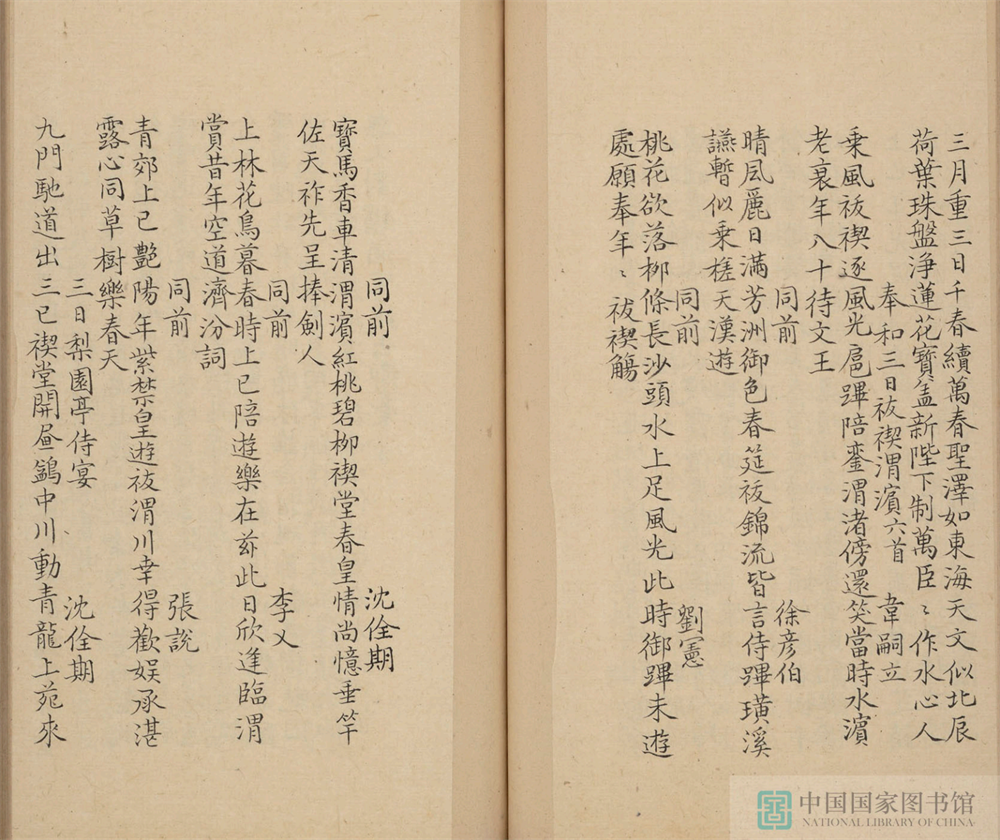 三月重三日千春續萬春聖澤如東海天文似北辰
荷葉珠盤淨蓮花寶盖新陛下制萬臣〻作水心人
奉和三日祓禊渭濱六首 韋嗣立
乗風祓禊逐風光扈蹕陪鑾渭渚傍還笑當時水濱
老衰年八十待文王
同前 徐彦伯
晴風麗日滿芳洲御色春筵祓錦流皆言侍蹕璜溪
讌暫似乗槎天漢遊
同前 劉憲
桃花欲落柳條長沙頭水上足風光此時御蹕未遊
處願奉年〻祓禊觴
同前 沈佺期
寶馬香車清渭濱紅桃碧柳禊堂春皇情尚憶垂竿
佐天祚先呈捧劍人
同前 李乂
上林花鳥暮春時上巳陪遊樂在兹此日欣逢臨渭
賞昔年空道濟汾詞
同前 張説
青郊上巳艷陽年紫禁皇遊祓渭川幸得歡娱承湛
露心同草樹樂春天
三日梨園亭侍宴 沈佺期
九門馳道出三巳禊堂開晝鷁中川動青龍上苑來
中国国家图书馆
NATIONAL LIBRARY OF CHINA